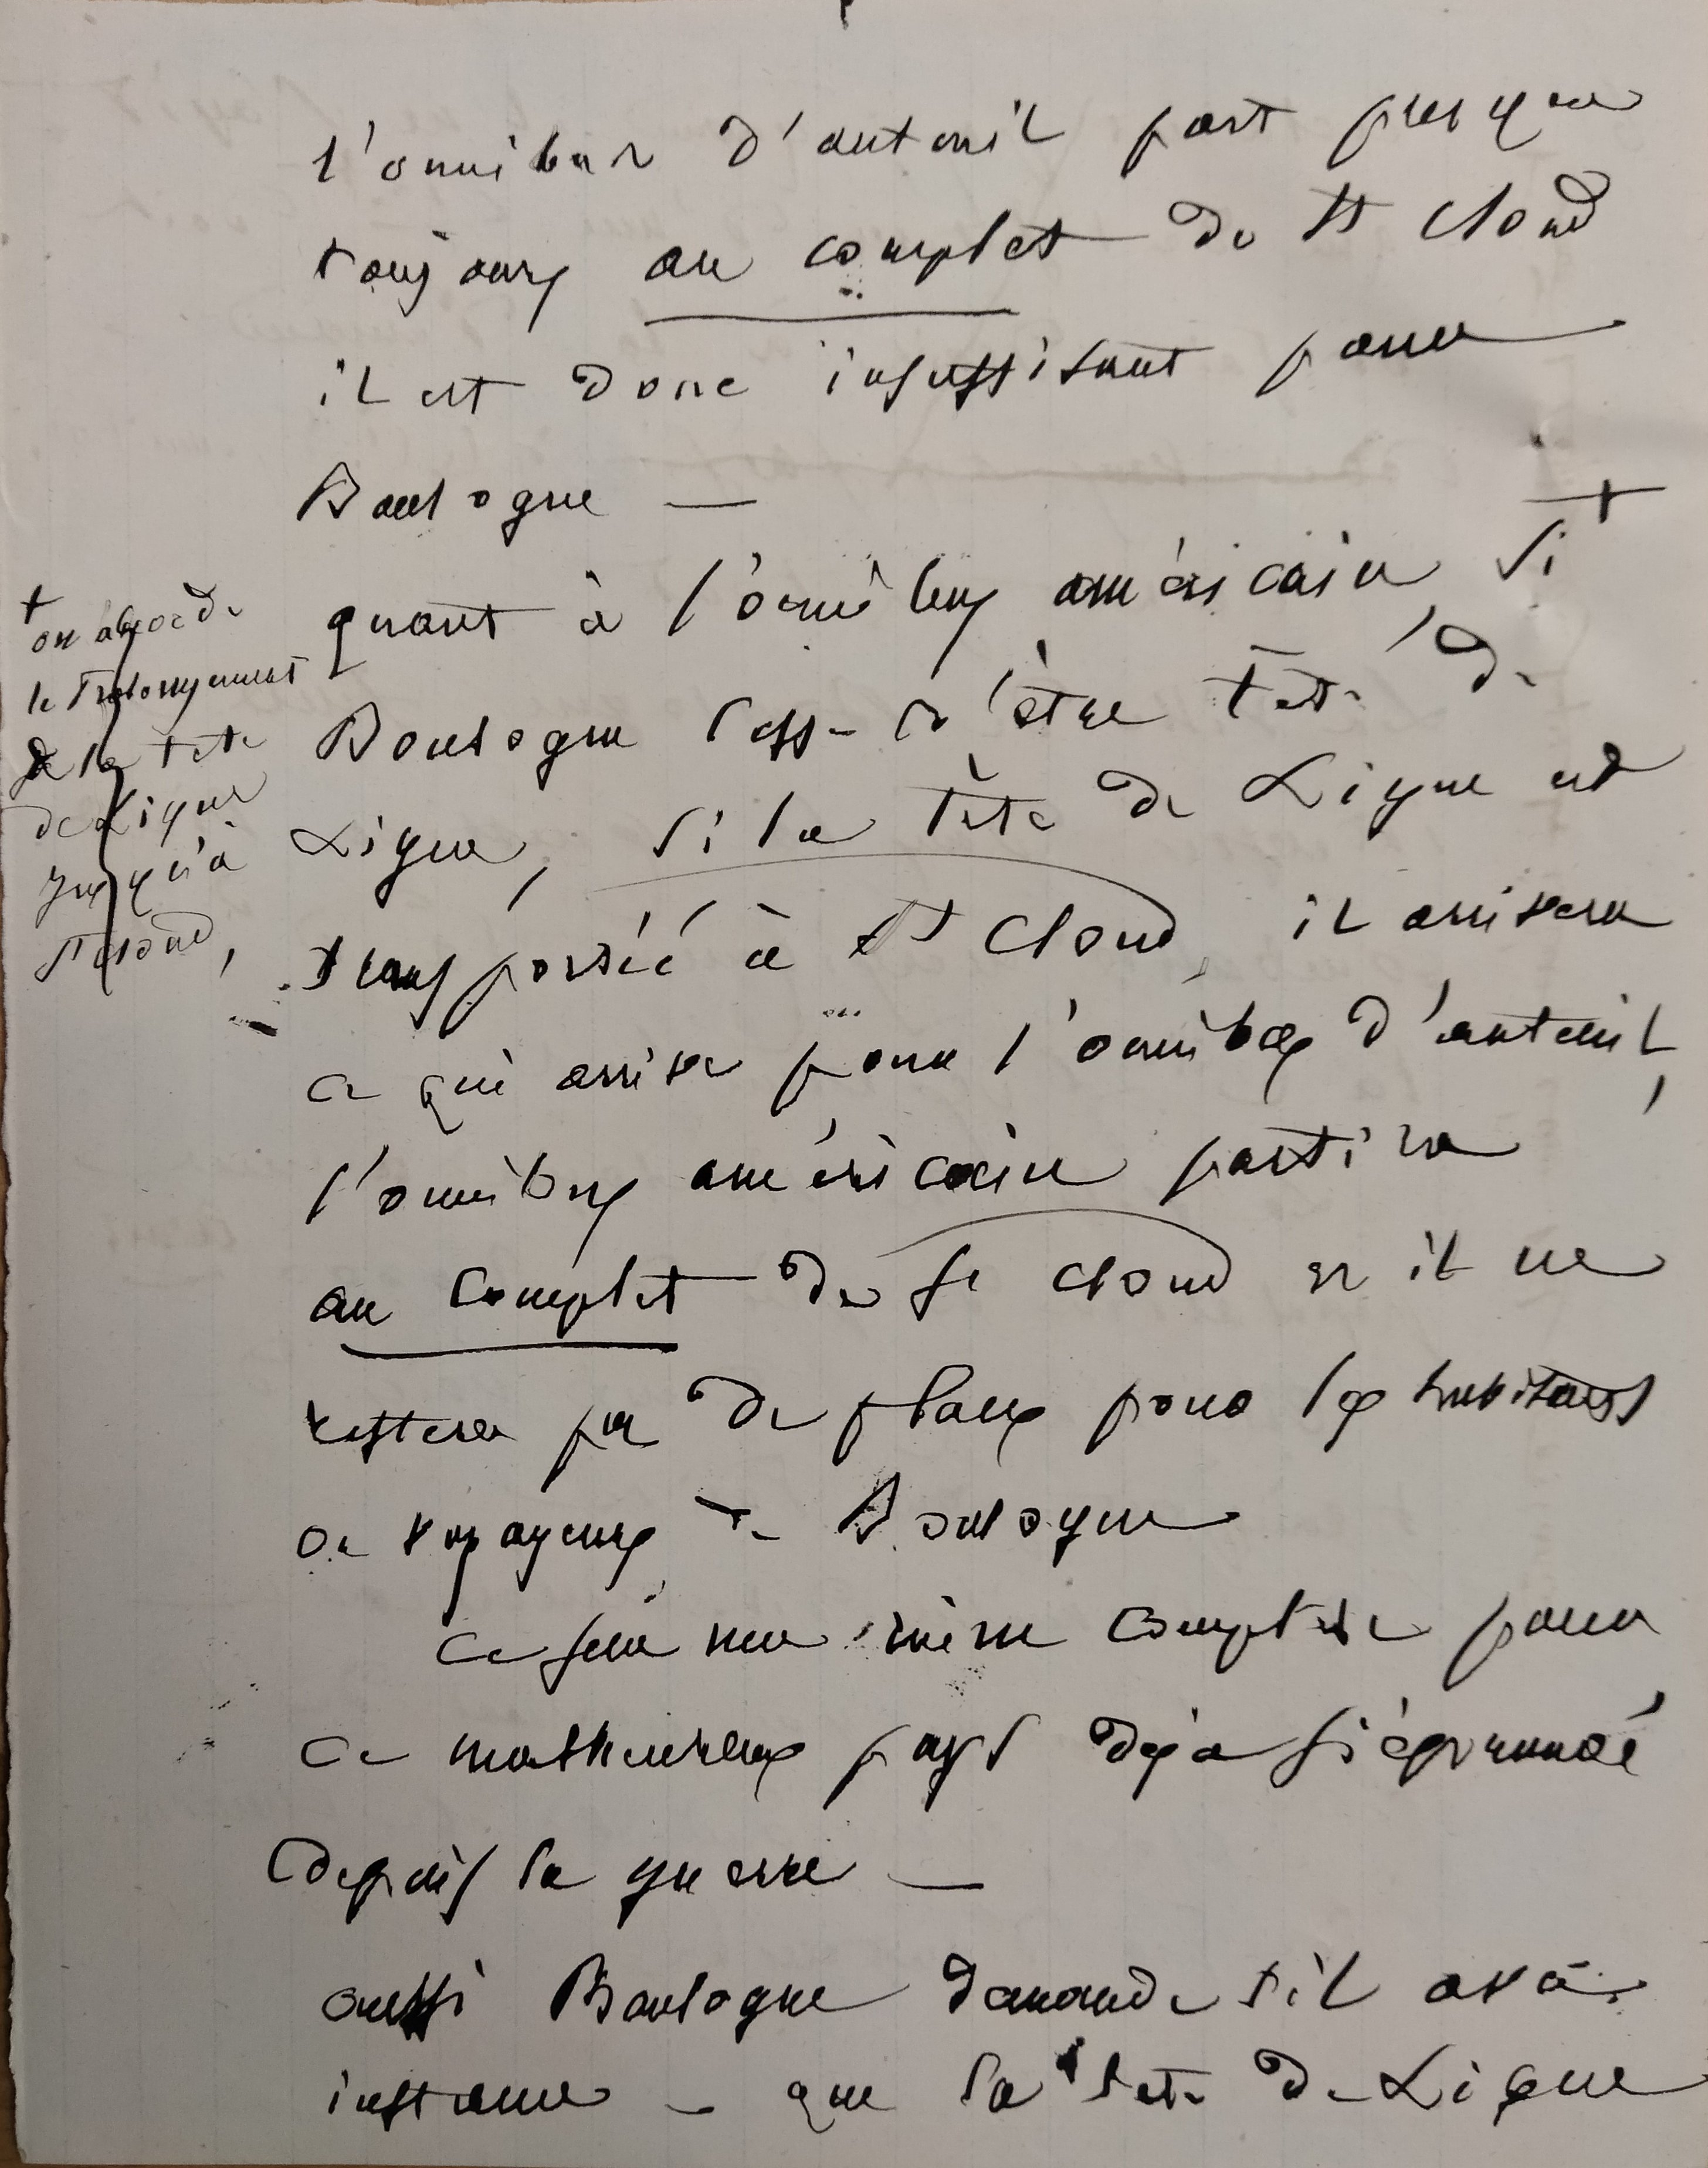 l'omnibus d'auteuil part presque
toujours au complet de St Cloud
il est donc insuffisant pour
Boulogne —
quant à l'omnibus américain, si +
Boulogne cesse d'être tête de
Ligne, si la tête de Ligne est
transportée à St Cloud, il arrivera
ce qui arrive pour l'omnibus d'auteuil,
l'omnibus américain partira
au complet de St Cloud et il ne
restera pas de places pour les habitans
ou voyageurs de Boulogne
ce sera une ruine complète pour
ce malheureux pays déjà si éprouvé
depuis la guerre —
aussi Boulogne demande s'il avec
instance — que la tete de Ligne
+
on accorde
le Prolongement
de la tete
de Ligne
jusqu'à
St Cloud,